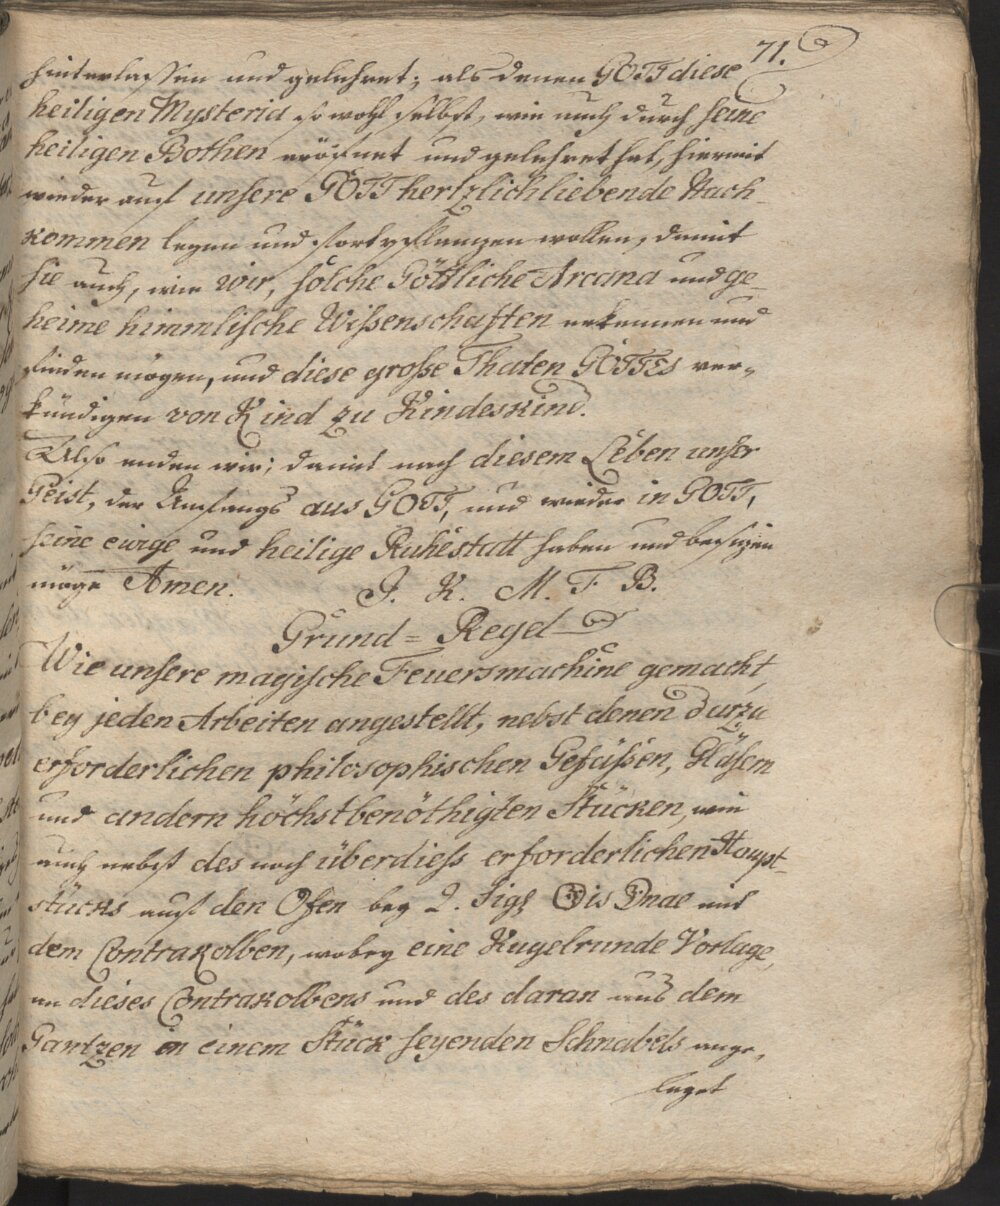 71.
hinterlassen und gelehret; als denen GOTT diese
heiligen Mysteria so wohl selbst, wie auch durch seine
heiligen Bothen eröfnet und gelehret hat, hiermit
wieder auf unsere GOTT hertzlich liebende Nach-
kommen legen und fortpflanzen wollen, damit
sie auch, wie wir, solche Göttliche Arcana und ge-
heime himmlische Wissenschaften erkennen und
finden mögen, und diese große Thaten GOTTES ver-
kündigen von Kind zu Kindeskind.
Also enden wir; damit nach diesem Leben unser
Geist, der Anfangs aus GOTT, und wieder in GOTT,
seine ewige und heilige Ruhestatt haben und besizen
möge Amen. J. K. M. F. B.
Grund=Regel
Wie unsere magische Feuersmachine gemacht,
bey jeden Arbeiten angestellt, nebst denen darzu
erforderlichen philosophischen Gefäßen, Gläsern
und andern höchstbenöthigten Stücken, wie
auch nebst des noch überdiess erforderlichen Haupt-
stücks auf den Ofen bey 2. Sigl is nae mit
dem Contrakolben, wobey eine Kugelrunde Vorlage,
an dieses Contrakolbens und des daran aus dem
Gantzen in einem Stück seyenden Schnabels ange-
leget